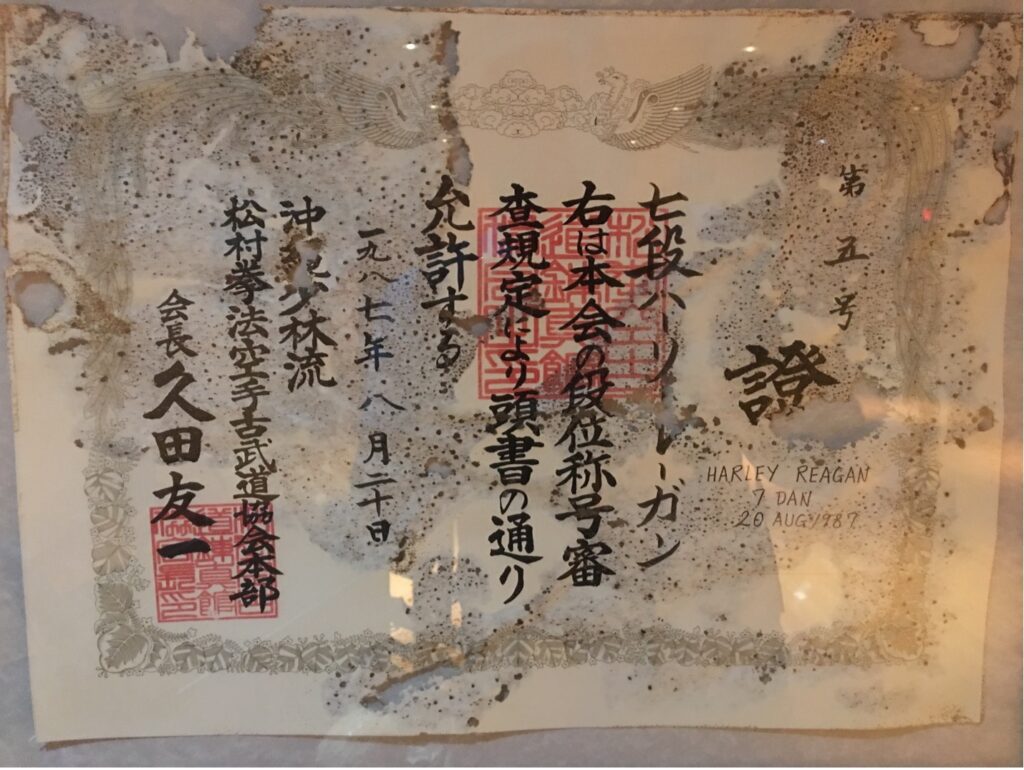 第五号
證
HARLEY REAGAN
7 DAN
20 AUG 1987
七段ハーリーレーガン
右は本会の段位称号審
査規定により頭書の通り
允許する
一九八七年八月二十日
沖縄少林流
松村拳法空手古武道協会本部
会長 久田友一